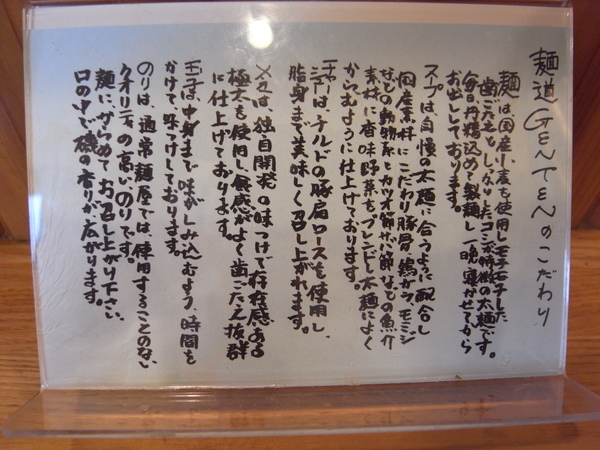 麺道GENTENのこだわり
麺は、国産小麦を使用しモチモチした
歯ごたえと、しっかりしたコシが特徴の太麺です。
毎日丹精込めて製麺し一晩寝かせてから
お出ししております。
スープは自慢の太麺に合うように配合し
国産素材にこだわり豚骨・鶏ガラ・モミジ
などの動物系、カツオ節・ホバ節などの魚介
素材に香味野菜をブレンドし太麺によく
からむように仕上げております。
チャーシューは、チルドの豚肩ロースを使用し、
脂身まで美味しく召し上がれます。
メンマは、独自開発の味つけで存在感ある
極太を使用し食感がよく歯ごたえ抜群
に仕上げております。
玉子は、中身まで味がしみ込むよう、時間を
かけて、味つけしております。
のりは、通常麺屋では、使用することのない
クオリティの高い、のりです。
麺に、からめてお召し上がり下さい。
口の中で磯の香りが広がります。